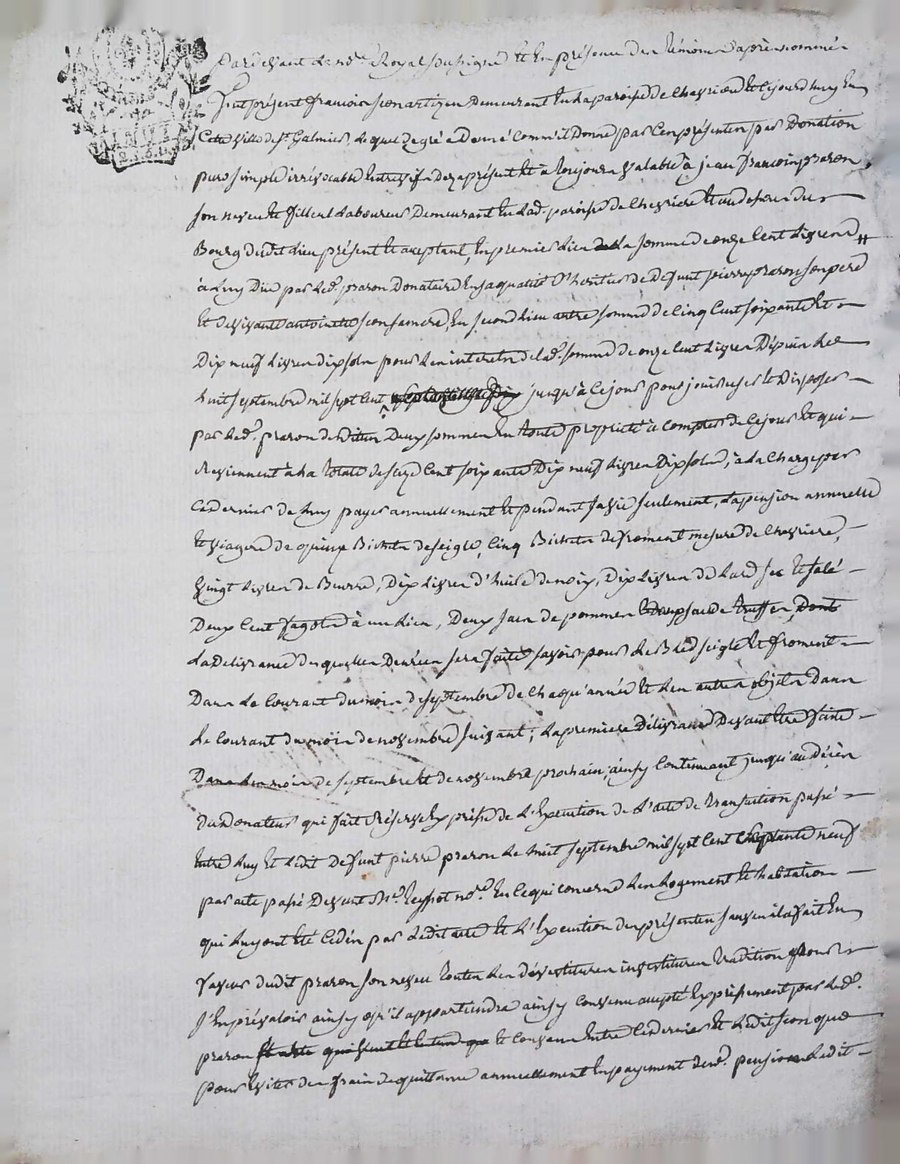 Pardevant le no.re Royal soussigné et En présence des témoins après nommés
fut présent françois seon artizan demeurant En la paroisse de Chevrieres Et cejourdhuy En
Cette ville de S.t Galmier, Lequel de gré a Donné comm'il Donne par Ces présentes par Donation
pure simple irrévocable Entrevifs dez aprésent Et à toujours valable à jean françois praron
son neveu Et fillieul Laboureur Demeurant En Lad. paroisse de Chevrieres Et au dessus du
Bourg dudit Lieu présent Et aceptant, En premier Lieu la somme de onze Cent Livres
à Luy Due par Led. praron Donataire En sa qualité d'héritier de Défunt pierre praron son pere
Et de vivante antoinette seon sa mere, En second Lieu autre somme de Cinq Cent soixante Et
Dix neuf Livres dix sols pour Les interets de lad. somme de onze Cent Livres Depuis Le
huit septembre mil sept Cent jusqu'à Ce jour pour jouir user Et Disposer
par Led. praron desdites Deux sommes En toute propriété à Compter de Ce jour Et qui
Reviennent à La totale de seize Cent soixante Dix neuf Livres Dix sols, à La Charge par
Ce dernier de Luy payer annuellement Et pendant sa vie seulement, La pension annuelle
Et viagere de quinze Bichets de seigle, Cinq Bichets de froment mesure de Chevrieres,
Vingt Livres de Beurre, Dix Livres d'huile de noix, Dix Livres de Lard sec Et salé
Deux Cent fagots à un Lien, Deux sacs de pommes Et Deux sacs de truffes, Dont
La Délivrance desquelles Denrées sera faite savoir pour Le Bled seigle Et froment
Dans Le Courant du mois de septembre de Chaqu'année Et Les autres objets Dans
Le Courant du mois de novembre suivant; La premiere Délivrance Devant Etre faite
Dans Les mois de septembre Et de novembre prochain, ainsy Continuant jusqu'au Décès
du Donateur qui fait Réserve Expresse de L'Execution de L'acte de transaction passé
Entre Luy Et Ledit Defunt pierre praron Le huit septembre mil sept Cent septante neuf
par acte passé Devant M.e no.re En Ce qui concerne Les Logement Et habitation
qui Luy ont Eté Cédés par Ledit acte Et L'Execution des présentes sans En
faveur dudit praron son neveu toutes Les dévestitures investitures tradition pour
s'En prévaloir ainsy qu'il appartiendra ainsy Convenu accepté Expressément par Led.
praron Et Convenu Entre Ce dernier Et Ledit seon que
pour Eviter des frais de quittance annuellement En payement de lad. pension Ledit